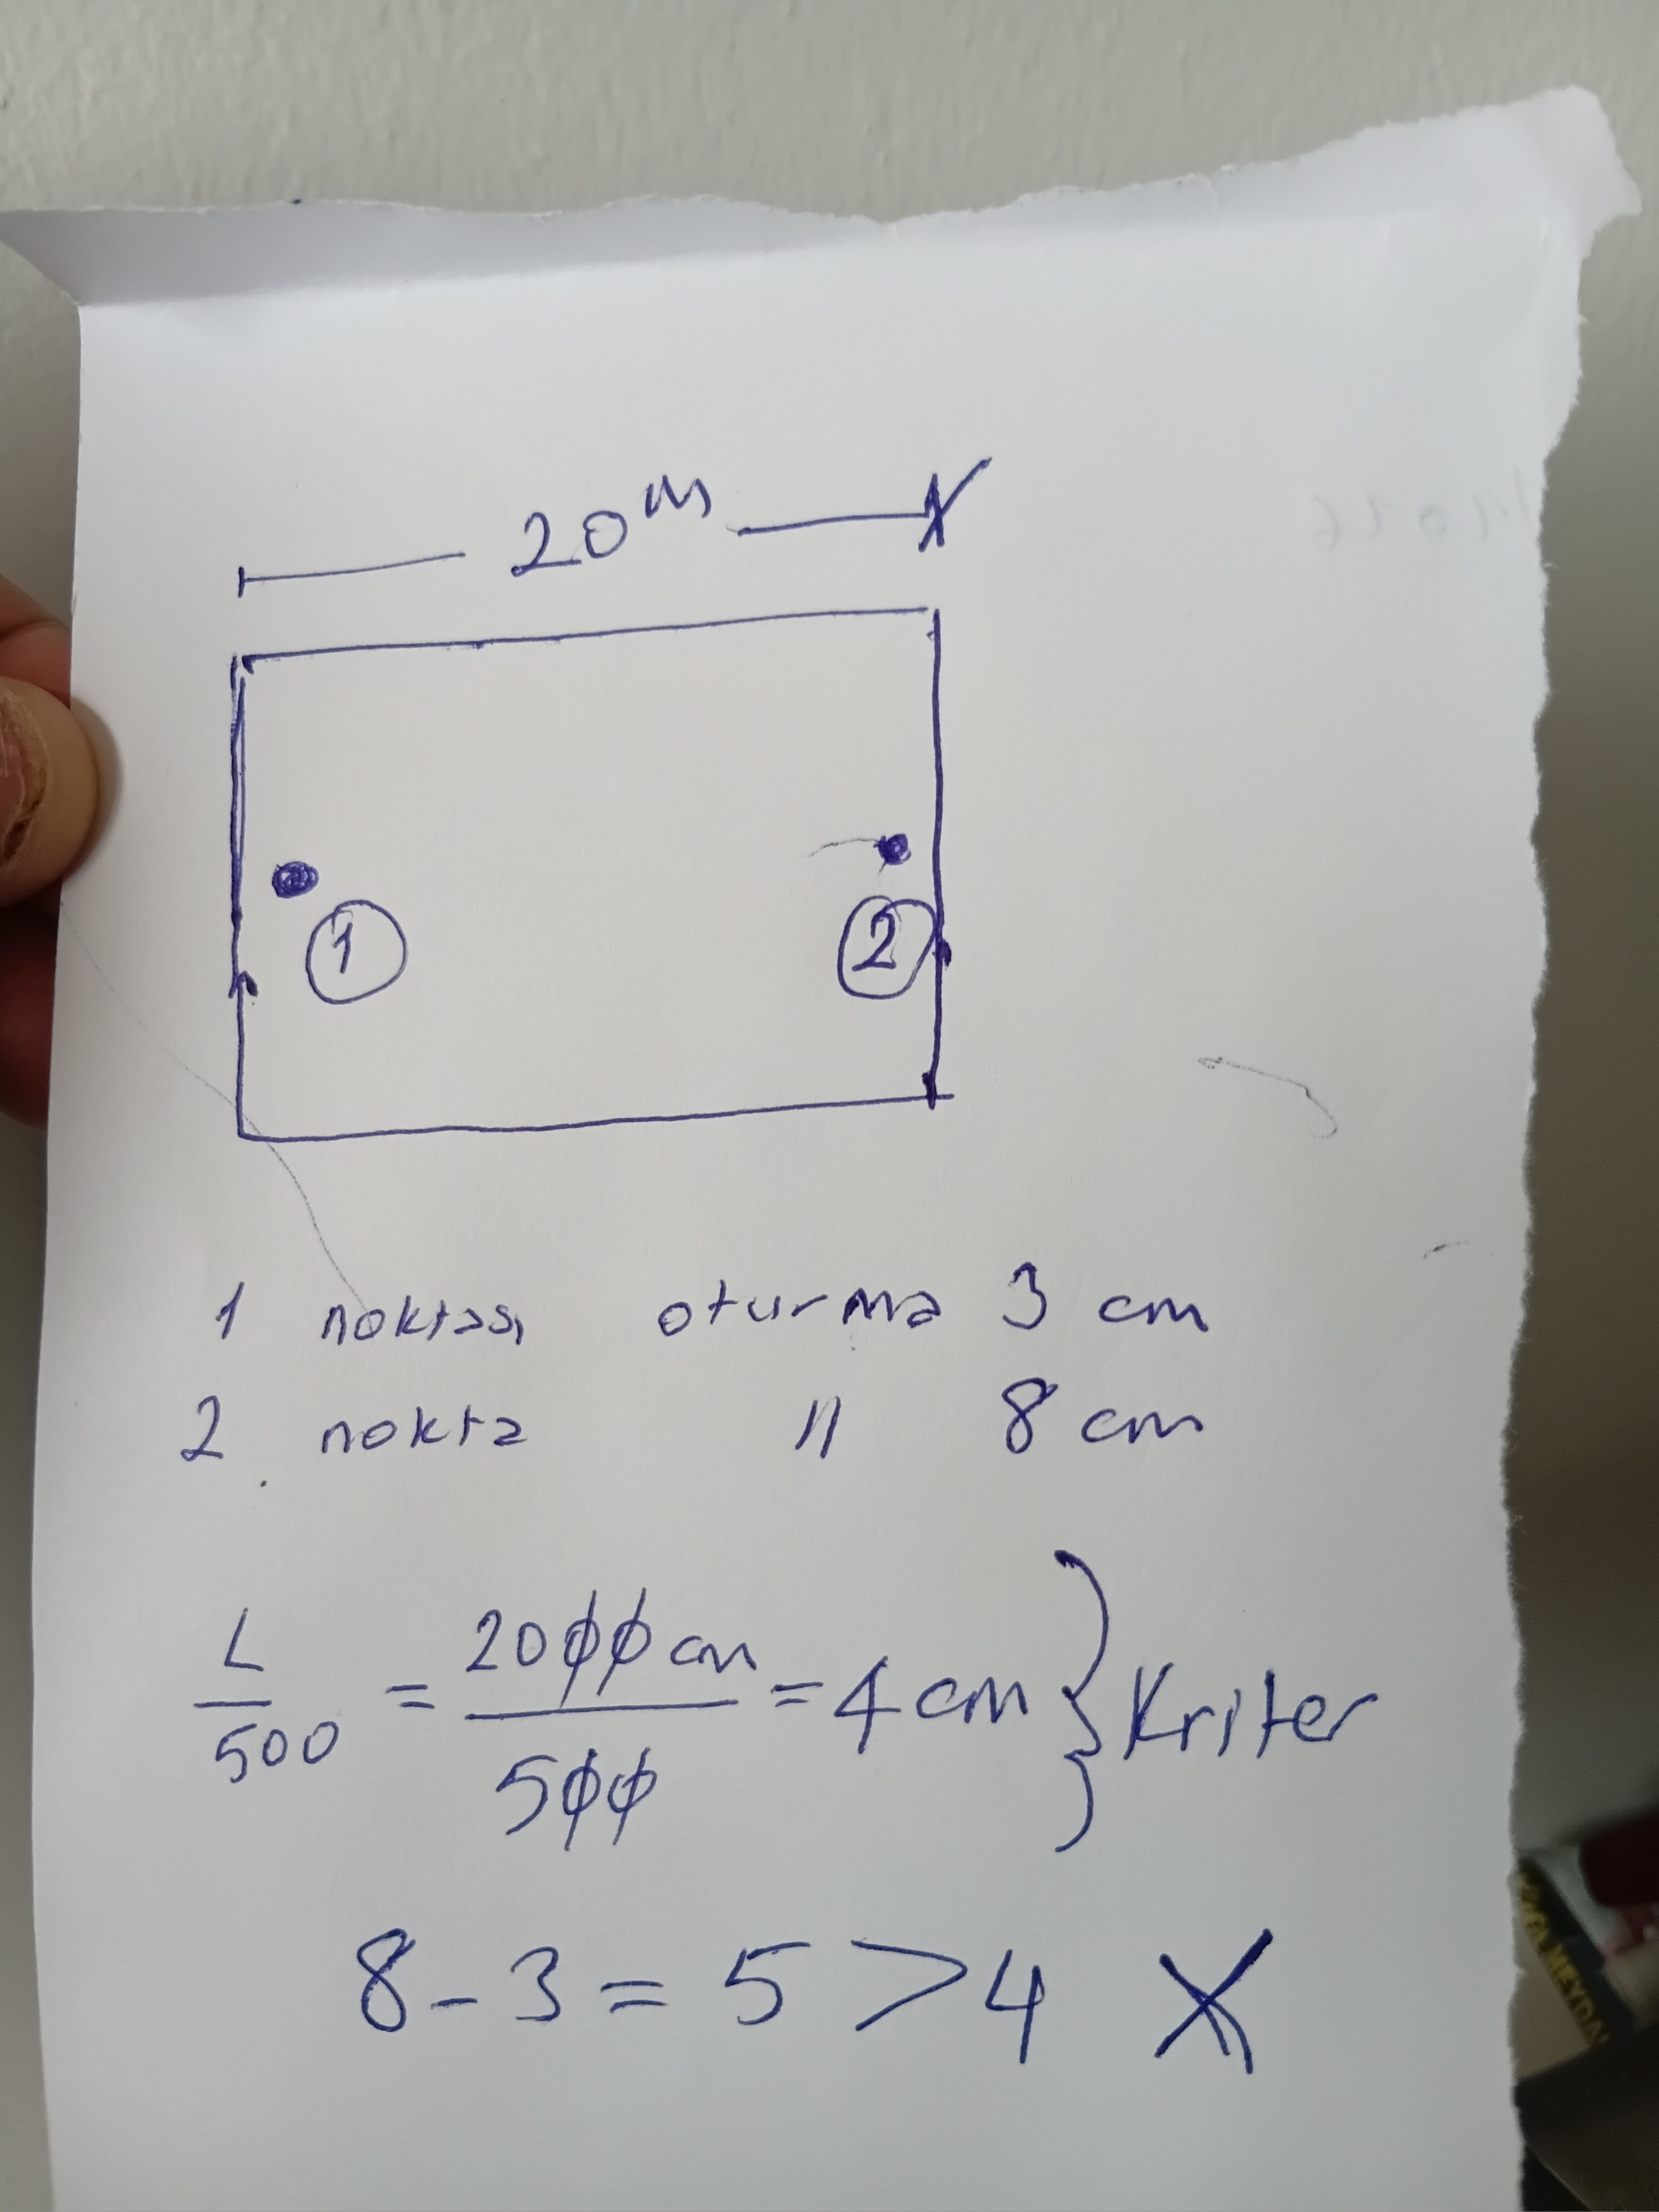 20 m
1
2
1 noktası oturma 3 cm
2 nokta " 8 cm
L/500 = 2000 cm/500 = 4 cm } Kriter
8 - 3 = 5 > 4 X